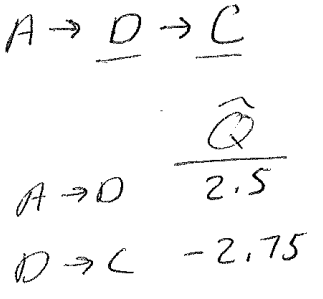 A → D → C
Q̂
A → D 2.5
D → C -2.75